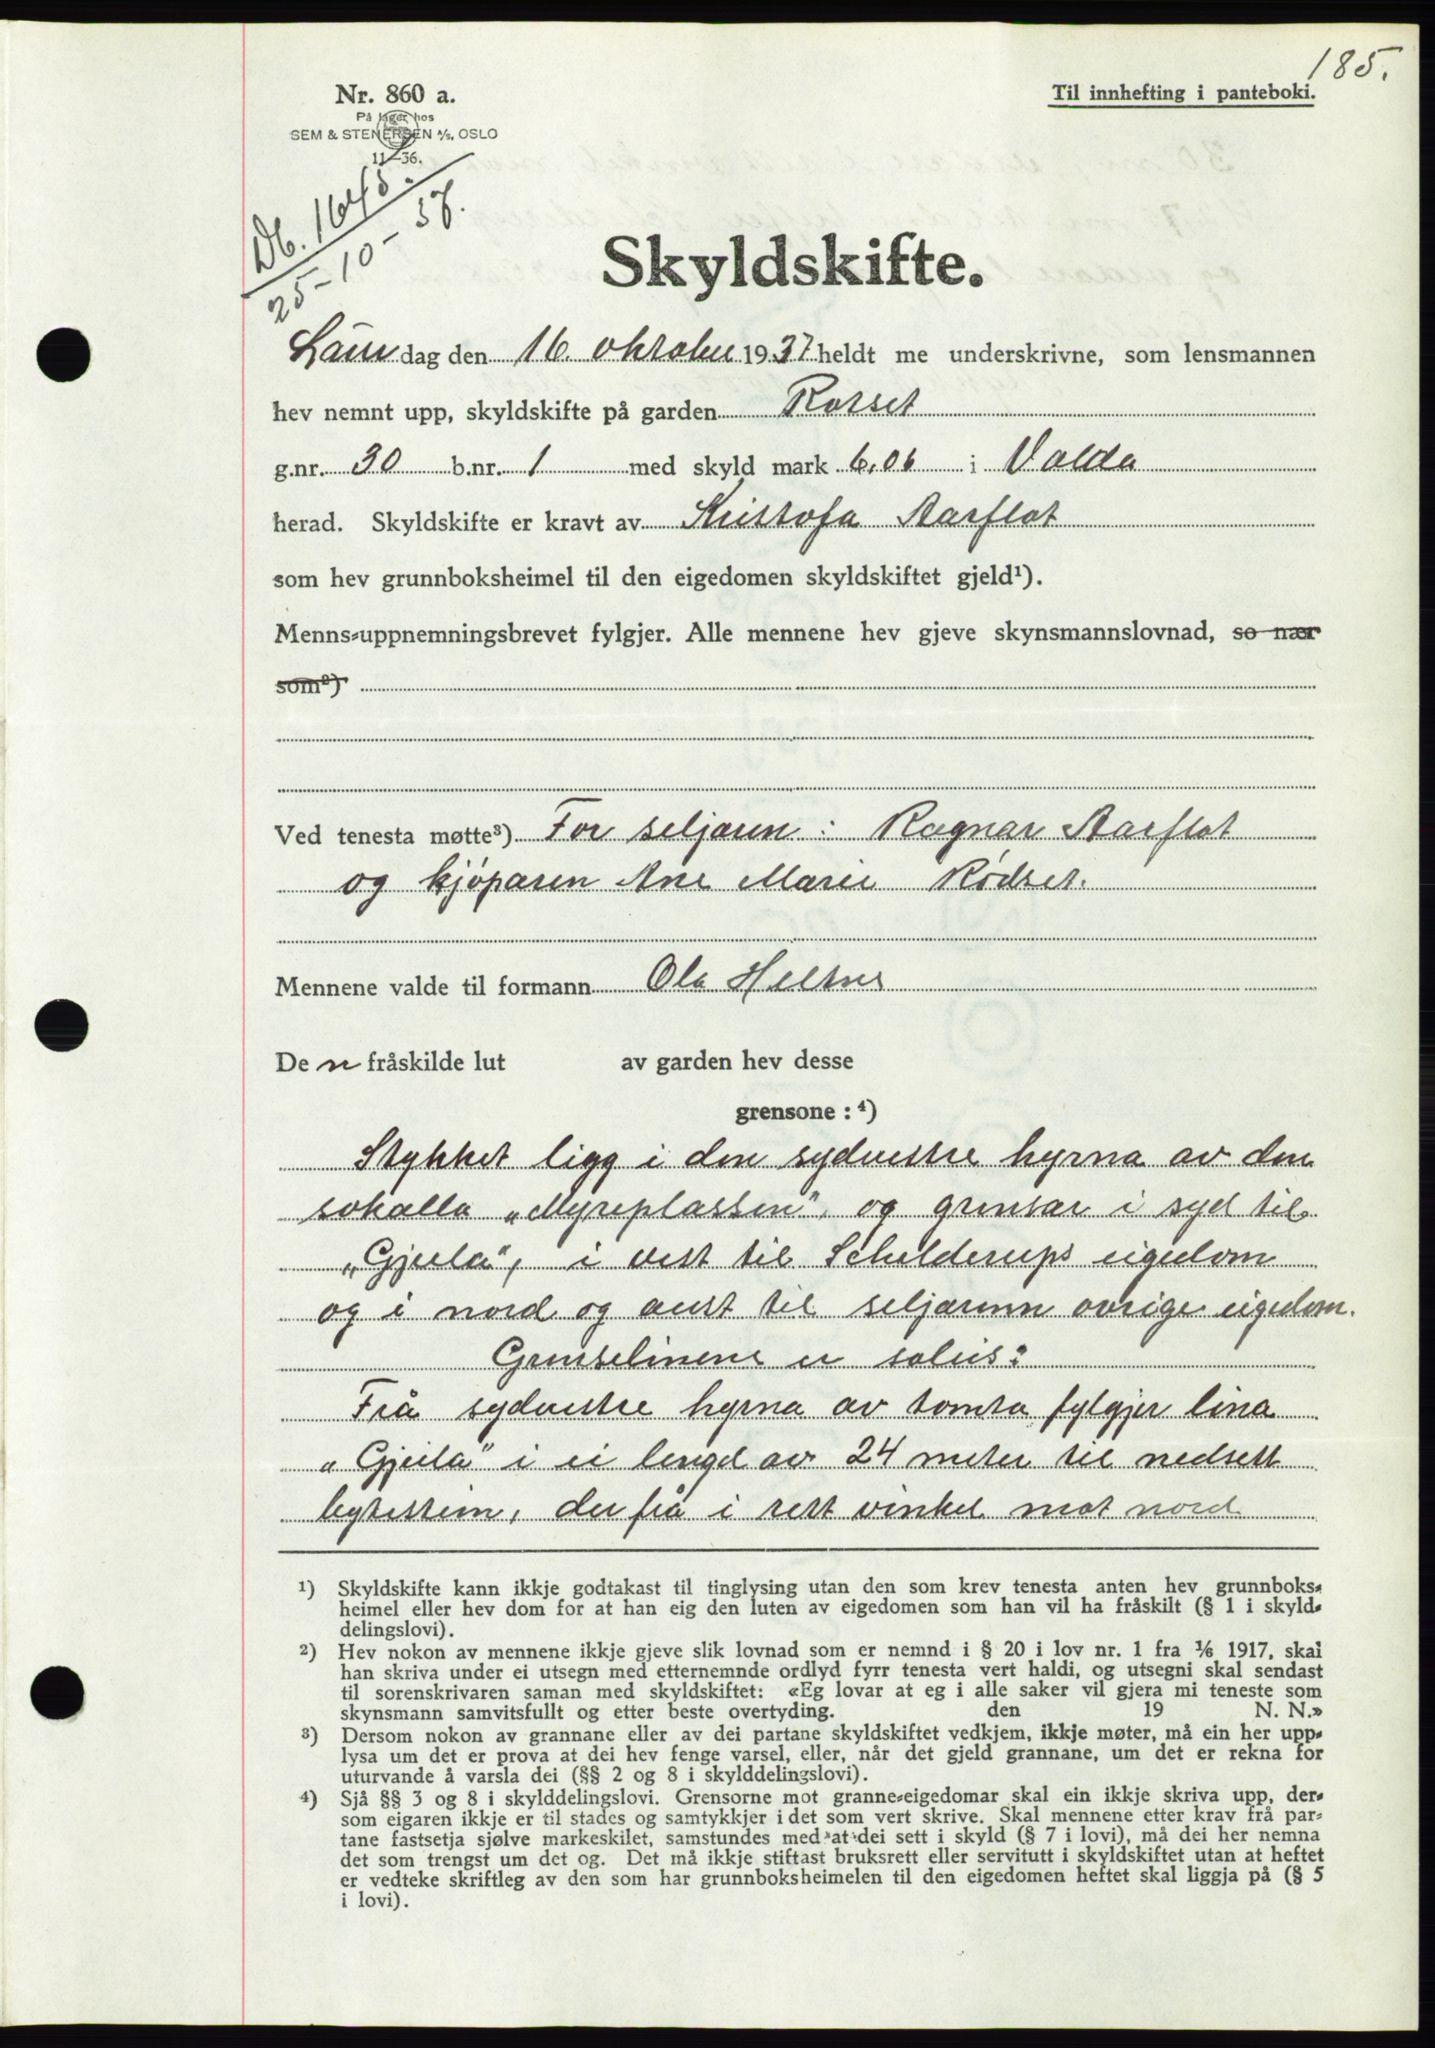 185.
Nr. 860 a.
På lager hos
SEM & STENERSEN A/S, OSLO
11—36.
Til innhefting i panteboki.
Db. 1645.
25-10-37.
Skyldskifte.
Laur dag den 16. oktober 1937 heldt me underskrivne, som lensmannen
hev nemnt upp, skyldskifte på garden Rotset
g.nr. 30 b.nr. 1 med skyld mark 6,06 i Volda
herad. Skyldskifte er kravt av Kristofa Aarflot
som hev grunnboksheimel til den eigedomen skyldskiftet gjeld¹).
Menns-uppnemningsbrevet fylgjer. Alle mennene hev gjeve skynsmannslovnad, so nær
som²)
Ved tenesta møtte³) For seljaren: Ragnar Aarflot
og kjøparen Ane Marie Rødset.
Mennene valde til formann Ola Heltne
De n fråskilde lut av garden hev desse
grensone : ⁴)
Stykket ligg i den sydvestre hyrna av den
sokalla „Myreplassen", og grensar i syd til
„Gjeila", i vest til Schelderups eigedom
og i nord og aust til seljarenn øvrige eigedom.
Grenselinene er soleis:
Frå sydvestre hyrna av tomta fylgjer lina
„Gjeila" i ei lengd av 24 meter til nedsett
bytestein, der frå i rett vinkel mot nord
¹) Skyldskifte kann ikkje godtakast til tinglysing utan den som krev tenesta anten hev grunnboks-
heimel eller hev dom for at han eig den luten av eigedomen som han vil ha fråskilt (§ 1 i skyld-
delingslovi).
²) Hev nokon av mennene ikkje gjeve slik lovnad som er nemnd i § 20 i lov nr. 1 fra ¹/₆ 1917, skal
han skriva under ei utsegn med etternemnde ordlyd fyrr tenesta vert haldi, og utsegni skal sendast
til sorenskrivaren saman med skyldskiftet: «Eg lovar at eg i alle saker vil gjera mi teneste som
skynsmann samvitsfullt og etter beste overtyding. den 19 N. N.»
³) Dersom nokon av grannane eller av dei partane skyldskiftet vedkjem, ikkje møter, må ein her upp-
lysa um det er prova at dei hev fenge varsel, eller, når det gjeld grannane, um det er rekna for
uturvande å varsla dei (§§ 2 og 8 i skylddelingslovi).
⁴) Sjå §§ 3 og 8 i skylddelingslovi. Grensorne mot granne-eigedomar skal ein ikkje skriva upp, der-
som eigaren ikkje er til stades og samtykkjer i det som vert skrive. Skal mennene etter krav frå par-
tane fastsetja sjølve markeskilet, samstundes med at dei sett i skyld (§ 7 i lovi), må dei her nemna
det som trengst um det og. Det må ikkje stiftast bruksrett eller servitutt i skyldskiftet utan at heftet
er vedteke skriftleg av den som har grunnboksheimelen til den eigedomen heftet skal liggja på (§ 5
i lovi).